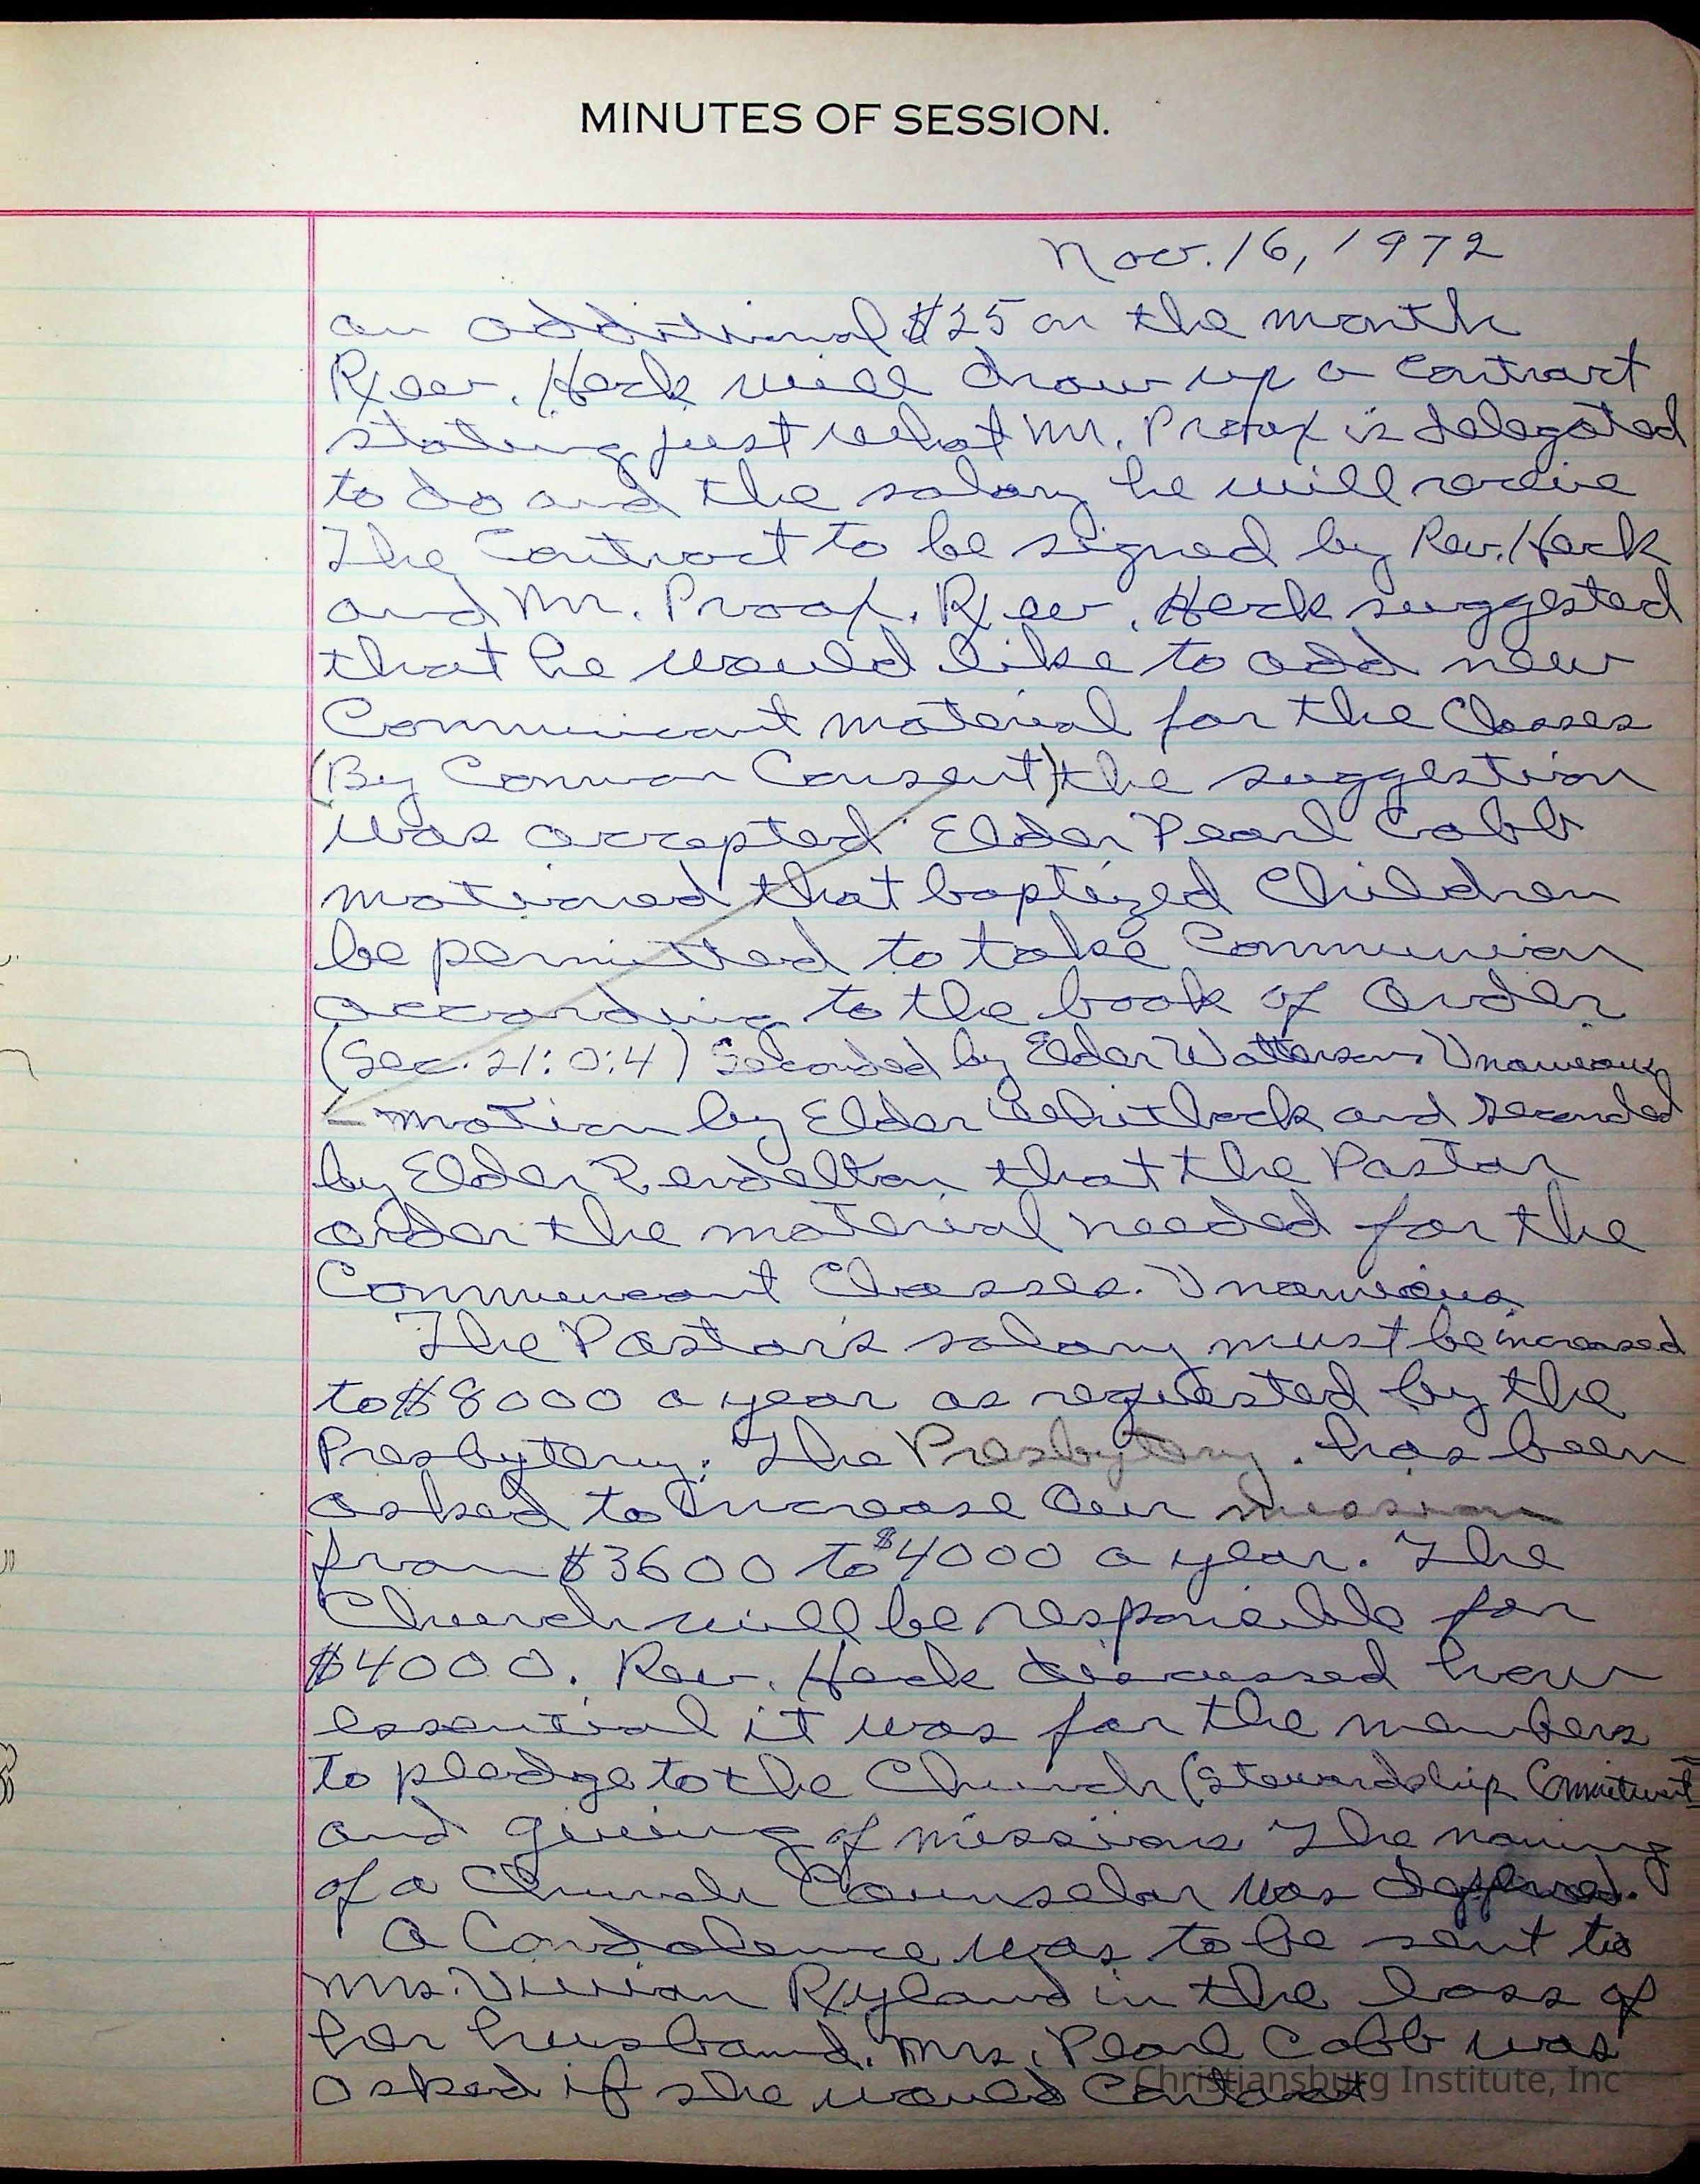 MINUTES OF SESSION.
Nov. 16, 1972
an additional $25 on the month
Rev. Heck will draw up a contract
stating just what Mr. is delegated
to do and the salary he will receive
The Contract to be signed by Rev. Heck
and Mr. Rev. Heck suggested
that he would like to add new
Communicant material for the Classes
(By Common Consent) the suggestion
was accepted. Elder Pearl Cobb
motioned that baptized Children
be permitted to take Communion
according to the book of Order
(Sec. 21:0:4) Seconded by Elder Watterson. Unamious
Motion by Elder Whitlock and seconded
by Elder Pendelton that the Pastor
order the material needed for the
Communcant Classes. Unamious
The Pastor's salary must be increased
to $8000 a year as requested by the
Presbytery. The Presbytery. has been
asked to Increase Our mission
from $3600 to $4000 a year. The
Church will be responsible for
$4000. Rev. Heck discussed how
essential it was for the members
to pledge to the Church (Stewardship
and giving of missions The naming
of a Church Counselor was
A Condolence was to be sent to
Mrs. Vivian Ryland in the loss of
her husband. Mrs. Pearl Cobb was
asked if she would Contact
Christiansburg Institute, Inc